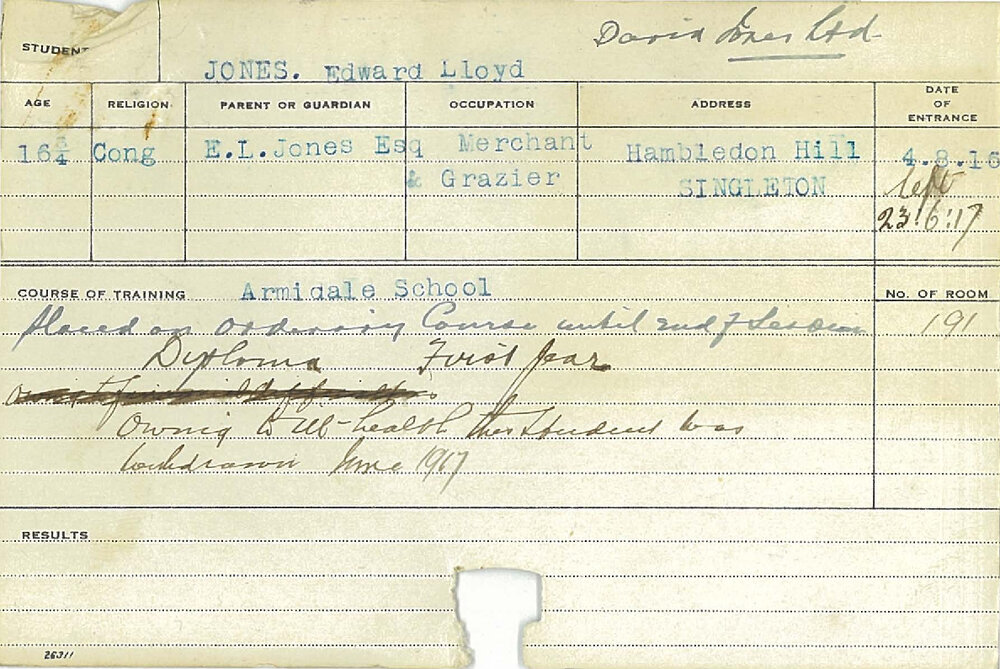 David Jones Ltd
STUDENT
JONES. Edward Lloyd
AGE RELIGION PARENT OR GUARDIAN OCCUPATION ADDRESS DATE OF ENTRANCE
16¾ Cong E.L.Jones Esq Merchant Hambledon Hill 4.8.16
& Grazier SINGLETON left
23:6:17
COURSE OF TRAINING Armidale School No. OF ROOM
placed on ordinary Course until end of Session 191
Diploma First Year
Owing to ill-health this student was
withdrawn June 1917
RESULTS
26311